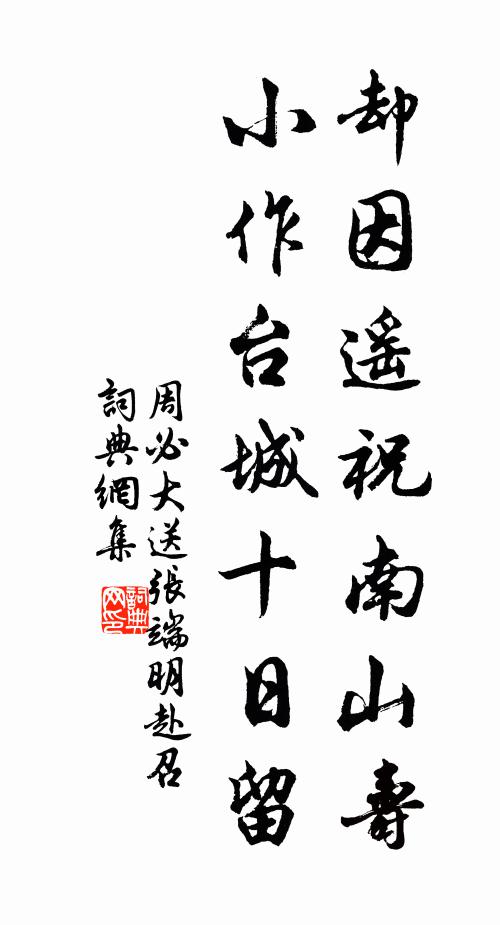 却因遥祝南山壽
小作台城十日留
周必大送張端明赴召
詞典網集
詞典网印